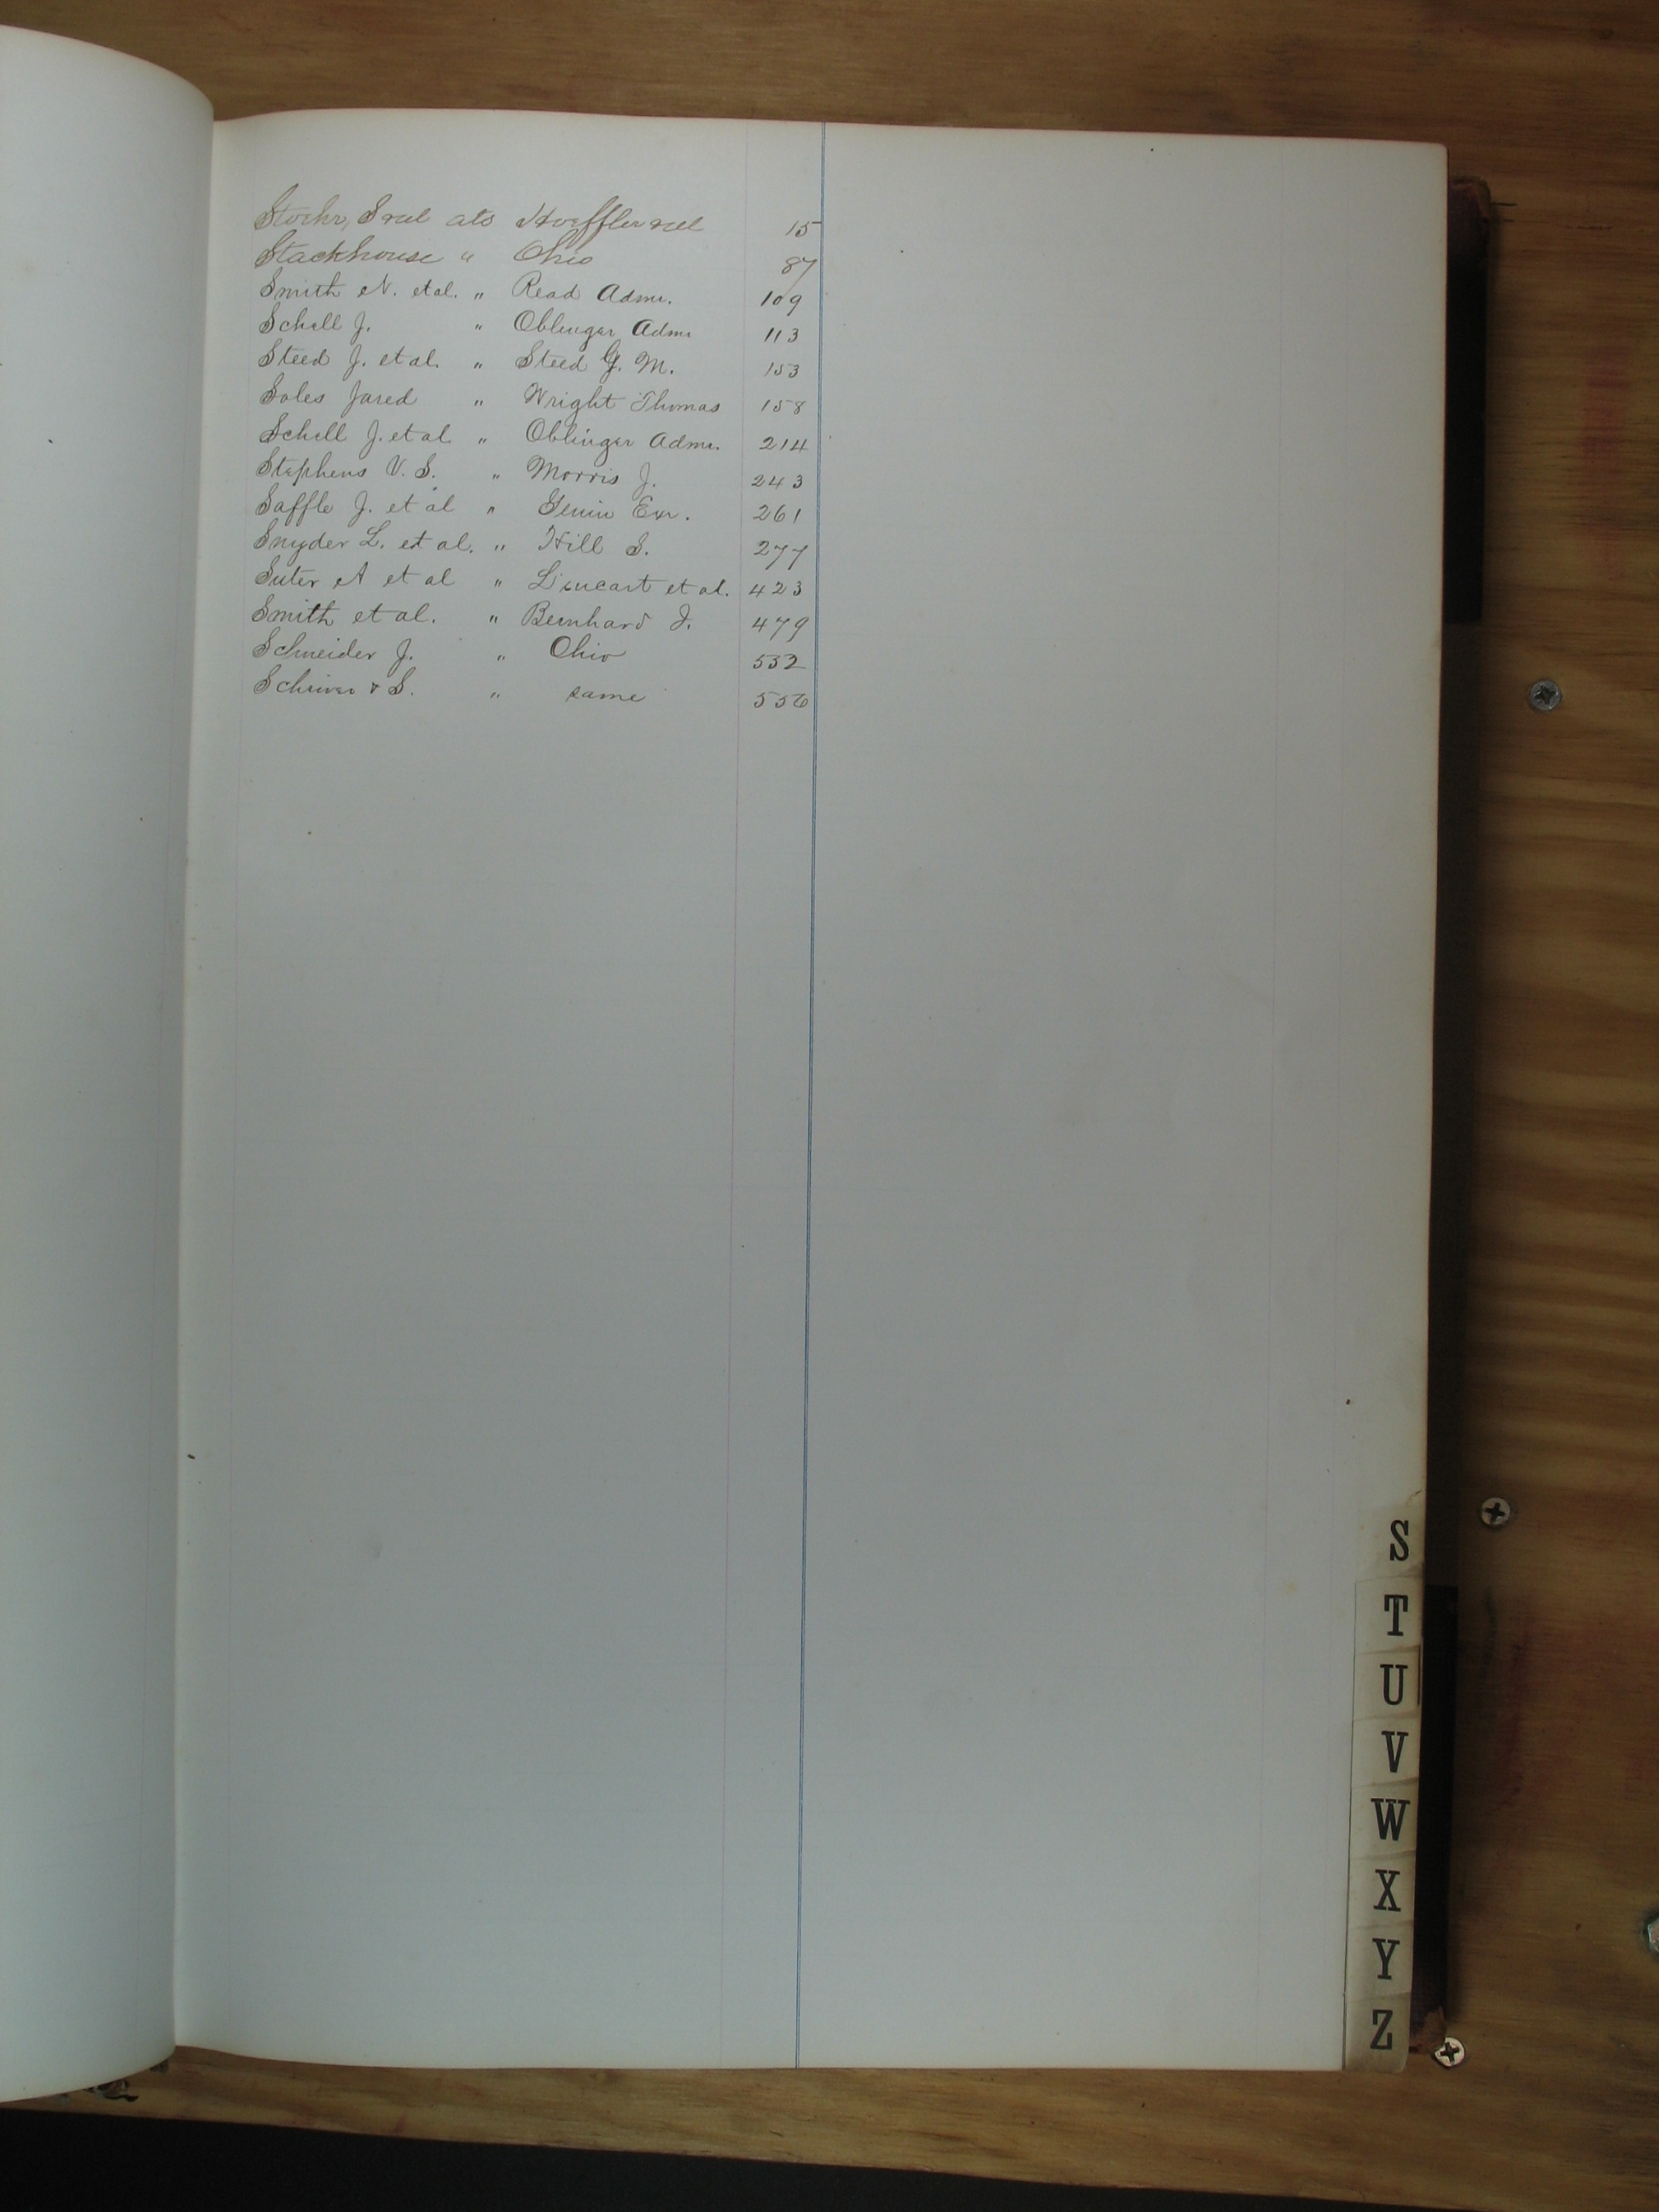 Stoehr, S ats Hoeffler 15
Stackhouse " Ohio 87
Smith N. et al. " Read Admr. 109
Schell J. " Oblinger Admr 113
Steed J. et al. " Steed G. M. 153
Soles Jared " Wright Thomas 158
Schell J. et al " Oblinger Admr. 214
Stephens V. S. " Morris J. 243
Saffle J. et al " Genin Exr. 261
Snyder L. et al. " Hill S. 277
Suter A et al " et al. 423
Smith et al. " Bernhard J. 479
Schneider J. " Ohio 532
Schriver & S. " same 556
S
T
U
V
W
X
Y
Z